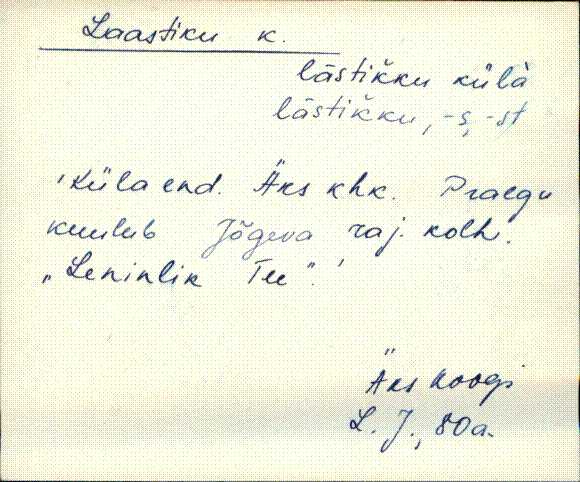 Laastiku k.
lāstikku külà
lāstikku, -s, -st
'Küla end. Äks khk. Praegu
kuulub Jõgeva raj. kolh.
„Leninlik Tee".'
Äks Koogi
L. J., 80a.